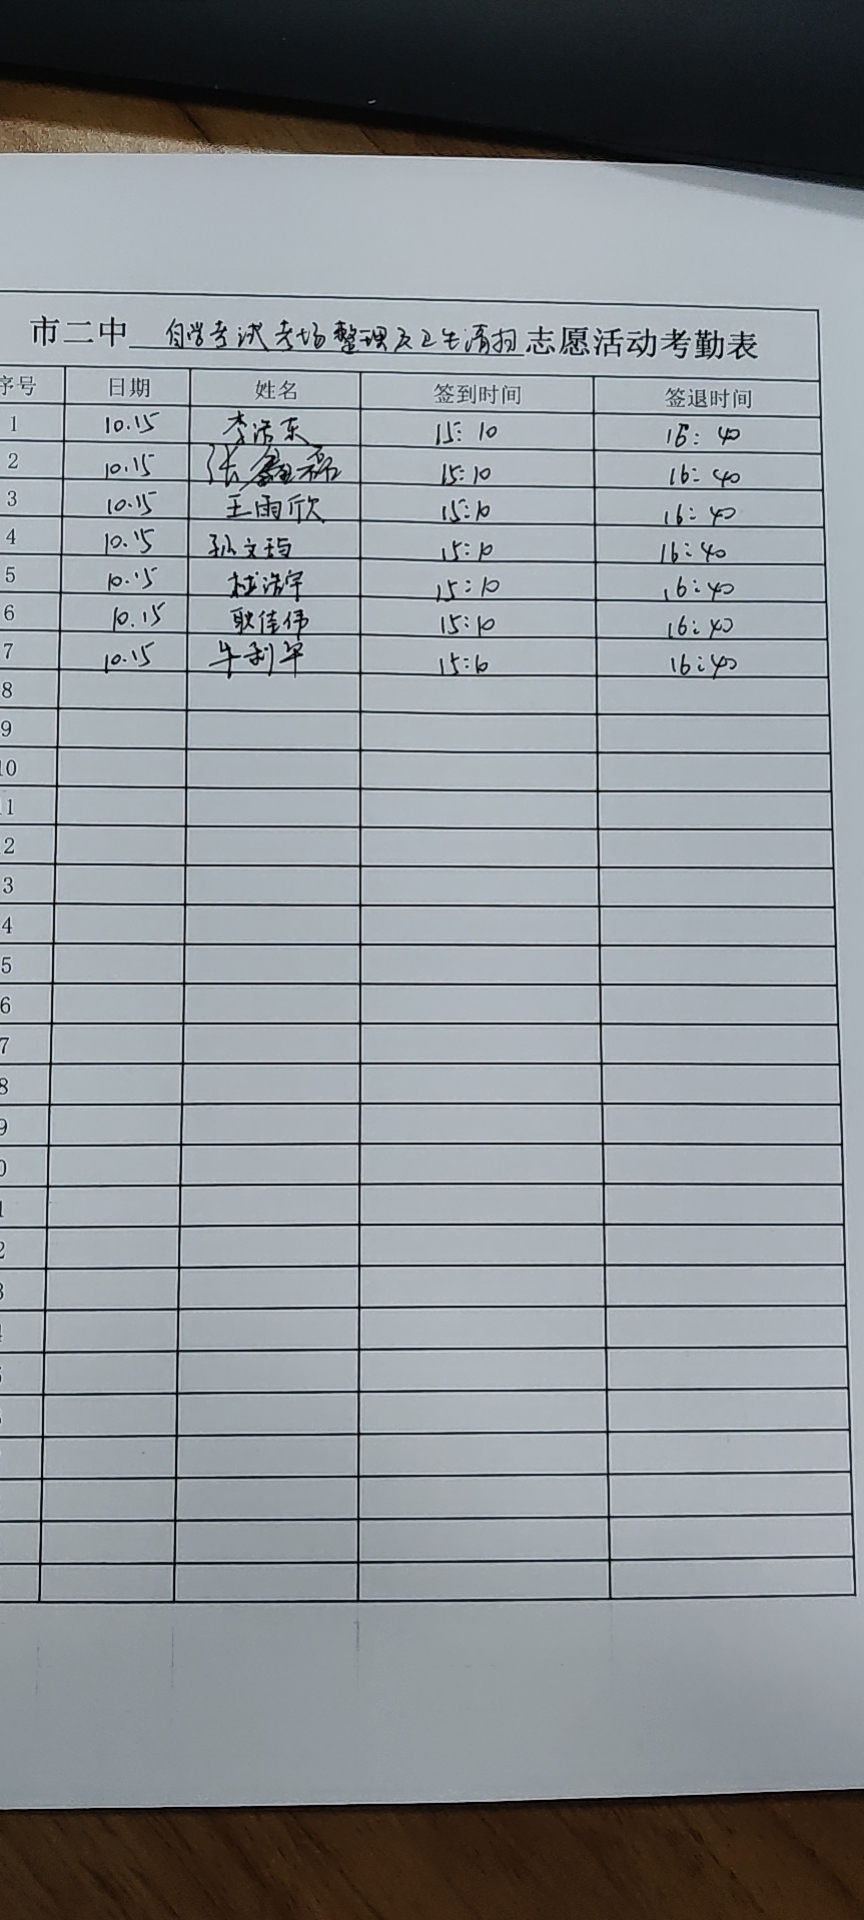 市二中 自学考试考场整理及卫生清扫 志愿活动考勤表
序号 日期 姓名 签到时间 签退时间
1 10.15 李浩东 15:10 16:40
2 10.15 张鑫磊 15:10 16:40
3 10.15 王雨欣 15:10 16:40
4 10.15 孙文 15:10 16:40
5 10.15 杜浩宇 15:10 16:40
6 10.15 耿佳伟 15:10 16:40
7 10.15 牛利军 15:10 16:40
8
9
10
1
2
3
4
5
6
7
8
9
0
1
2
3